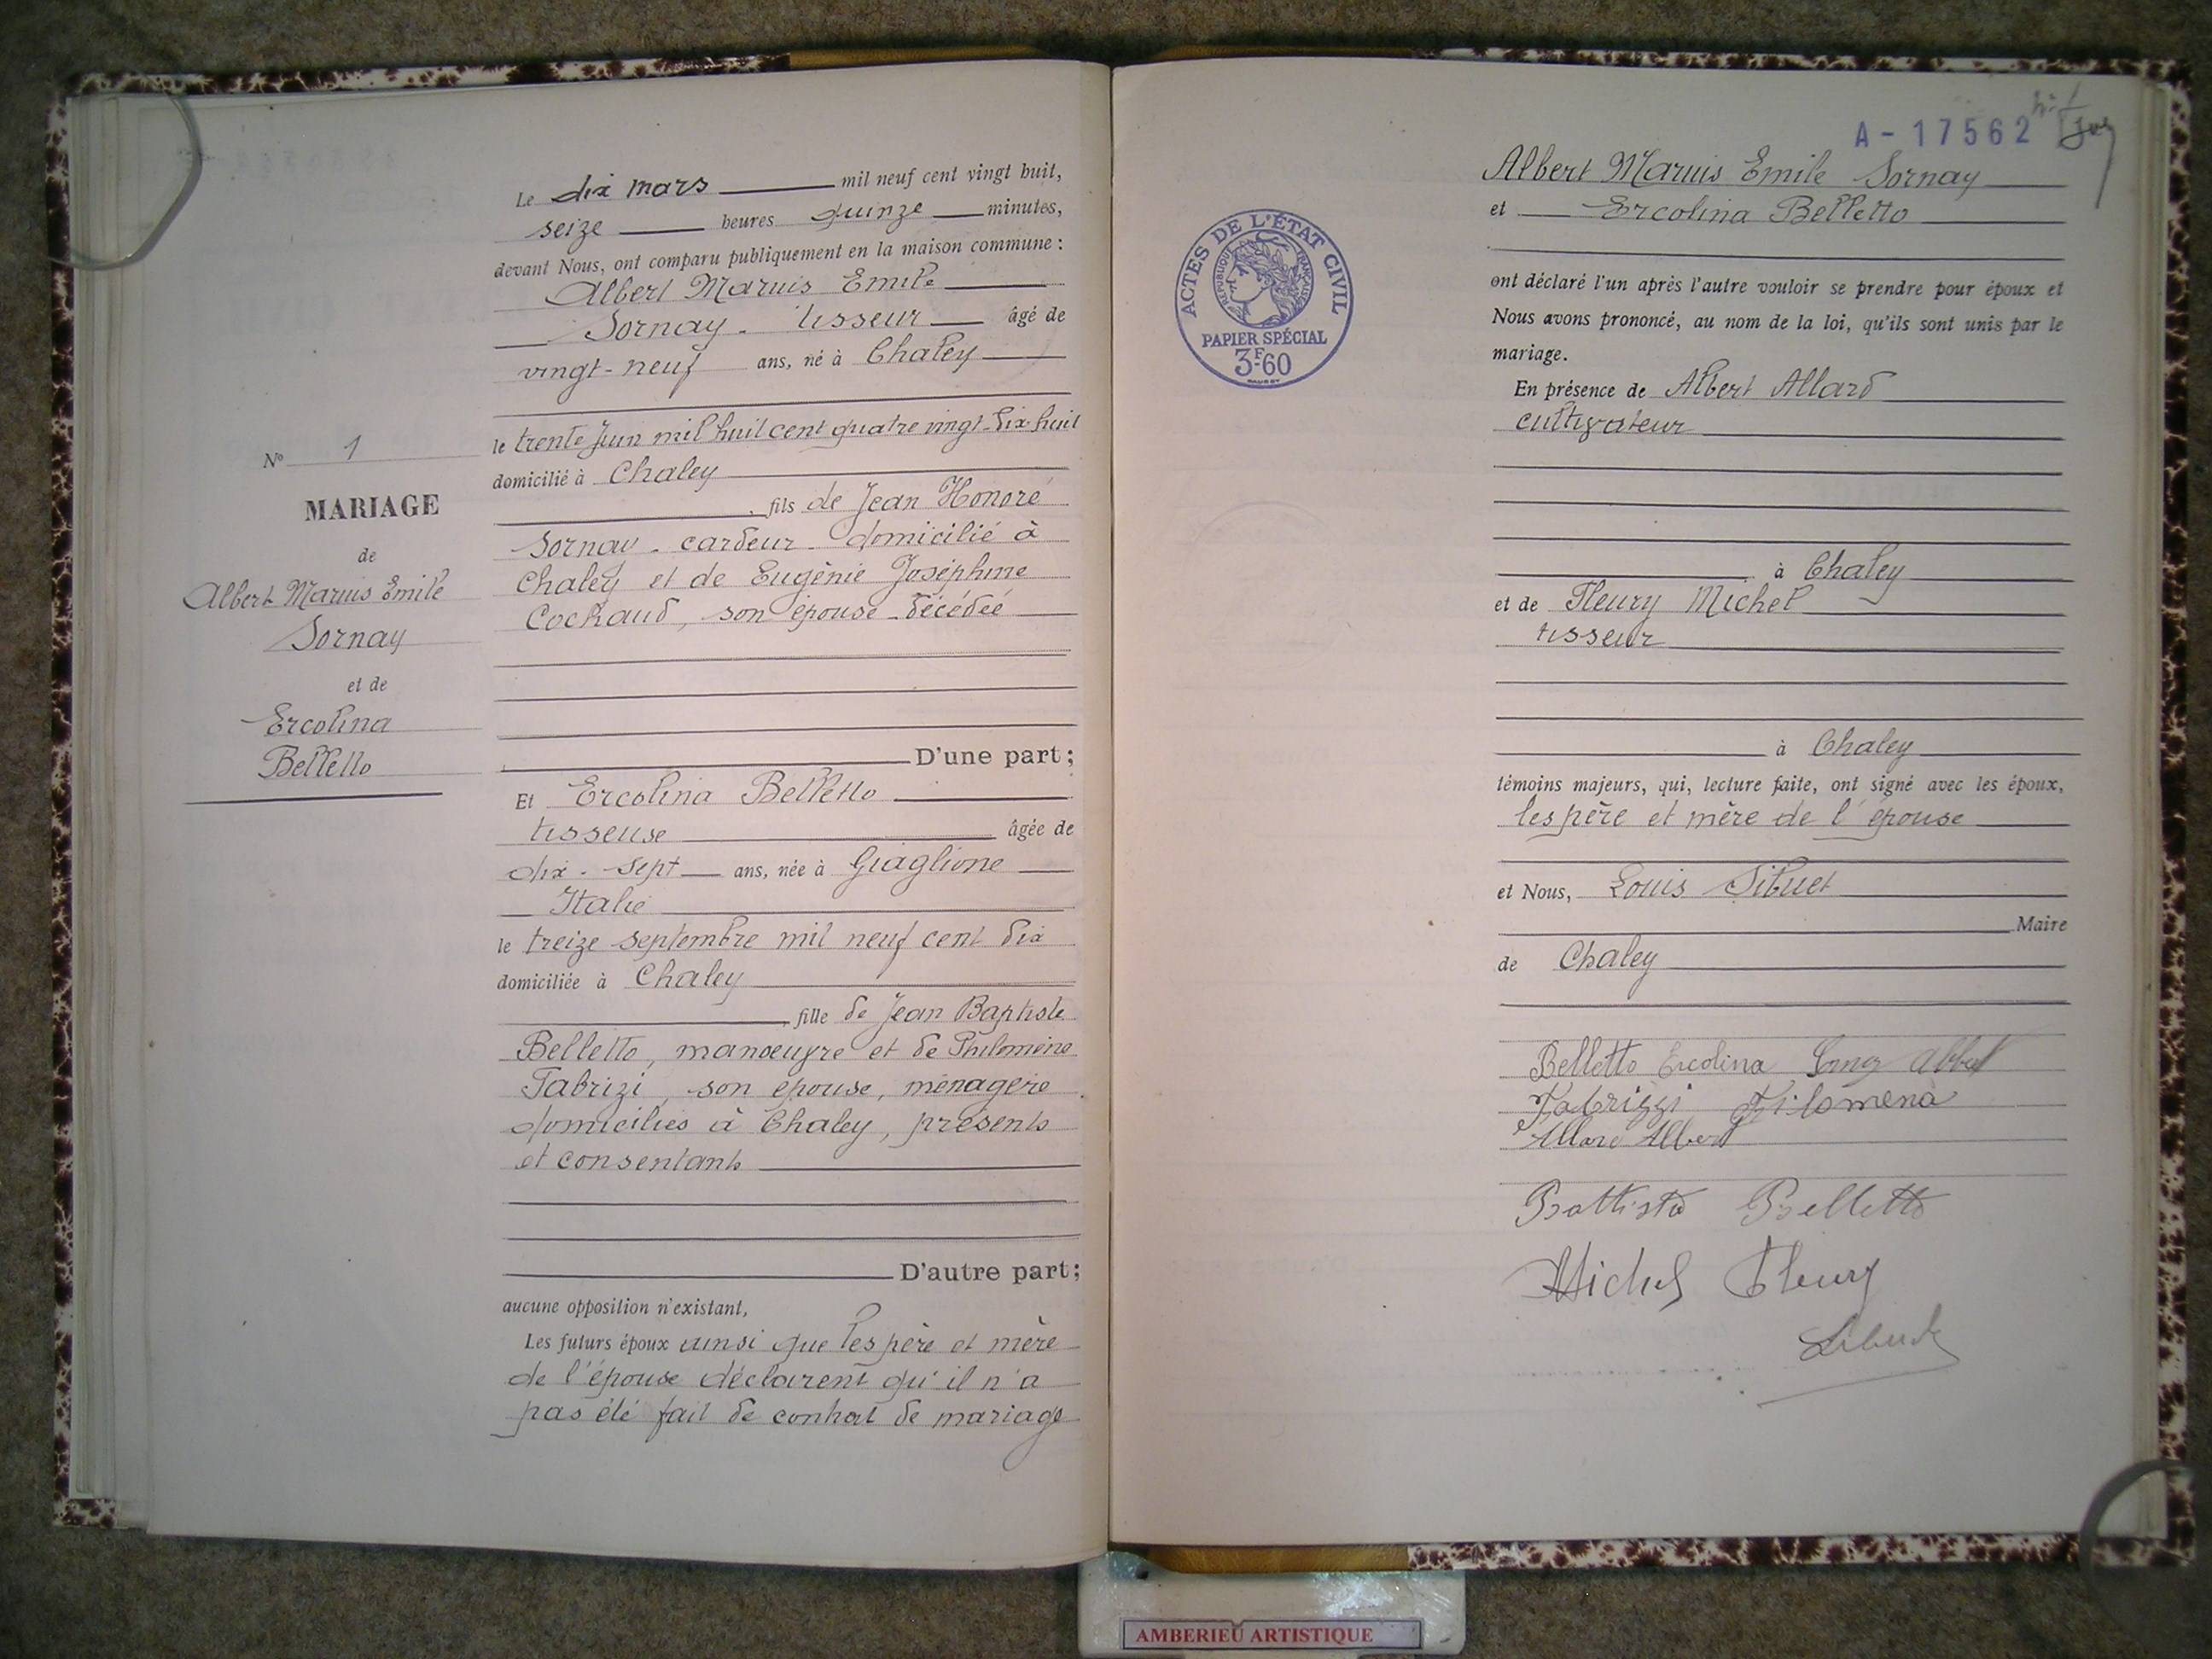 Le dix mars mil neuf cent vingt huit,
seize heures quinze minutes,
devant Nous, ont comparu publiquement en la maison commune :
Albert Marius Emile
Sornay - tisseur âgé de
vingt-neuf ans, né à Chaley
le trente Juin mil huit cent quatre vingt-dix-huit
domicilié à Chaley
fils de Jean Honoré
Sornay - cardeur - domicilié à
Chaley et de Eugènie Joséphine
Cochaud, son épouse - décédée
D'une part ;
N° 1
MARIAGE
de
Albert Marius Emile
Sornay
et de
Ercolina
Belletto
Et Ercolina Belletto
tisseuse âgée de
dix-sept ans, née à Giaglione
Italie
le treize septembre mil neuf cent dix
domiciliée à Chaley
fille de Jean Baptiste
Belletto, manoeuvre et de Philomène
Fabrizi, son épouse, ménagère
domiciliés à Chaley, présents
et consentants
D'autre part ;
aucune opposition n'existant,
Les futurs époux ainsi que les père et mère
de l'épouse déclarent qu'il n'a
pas été fait de contrat de mariage
A-17562
Albert Marius Emile Sornay
et Ercolina Belletto
ont déclaré l'un après l'autre vouloir se prendre pour époux et
Nous avons prononcé, au nom de la loi, qu'ils sont unis par le
mariage.
En présence de Albert Allard
cultivateur
à Chaley
et de Fleury Michel
tisseur
à Chaley
témoins majeurs, qui, lecture faite, ont signé avec les époux,
les père et mère de l'épouse
et Nous, Louis Sibuet
Maire
de Chaley
Belletto Ercolina
Fabrizzi Filomena
Allard Albert
Battista Belletto
Michel Fleury
Sibuet
ACTES DE L'ÉTAT CIVIL
RÉPUBLIQUE FRANÇAISE
PAPIER SPÉCIAL
3F60
AMBERIEU ARTISTIQUE